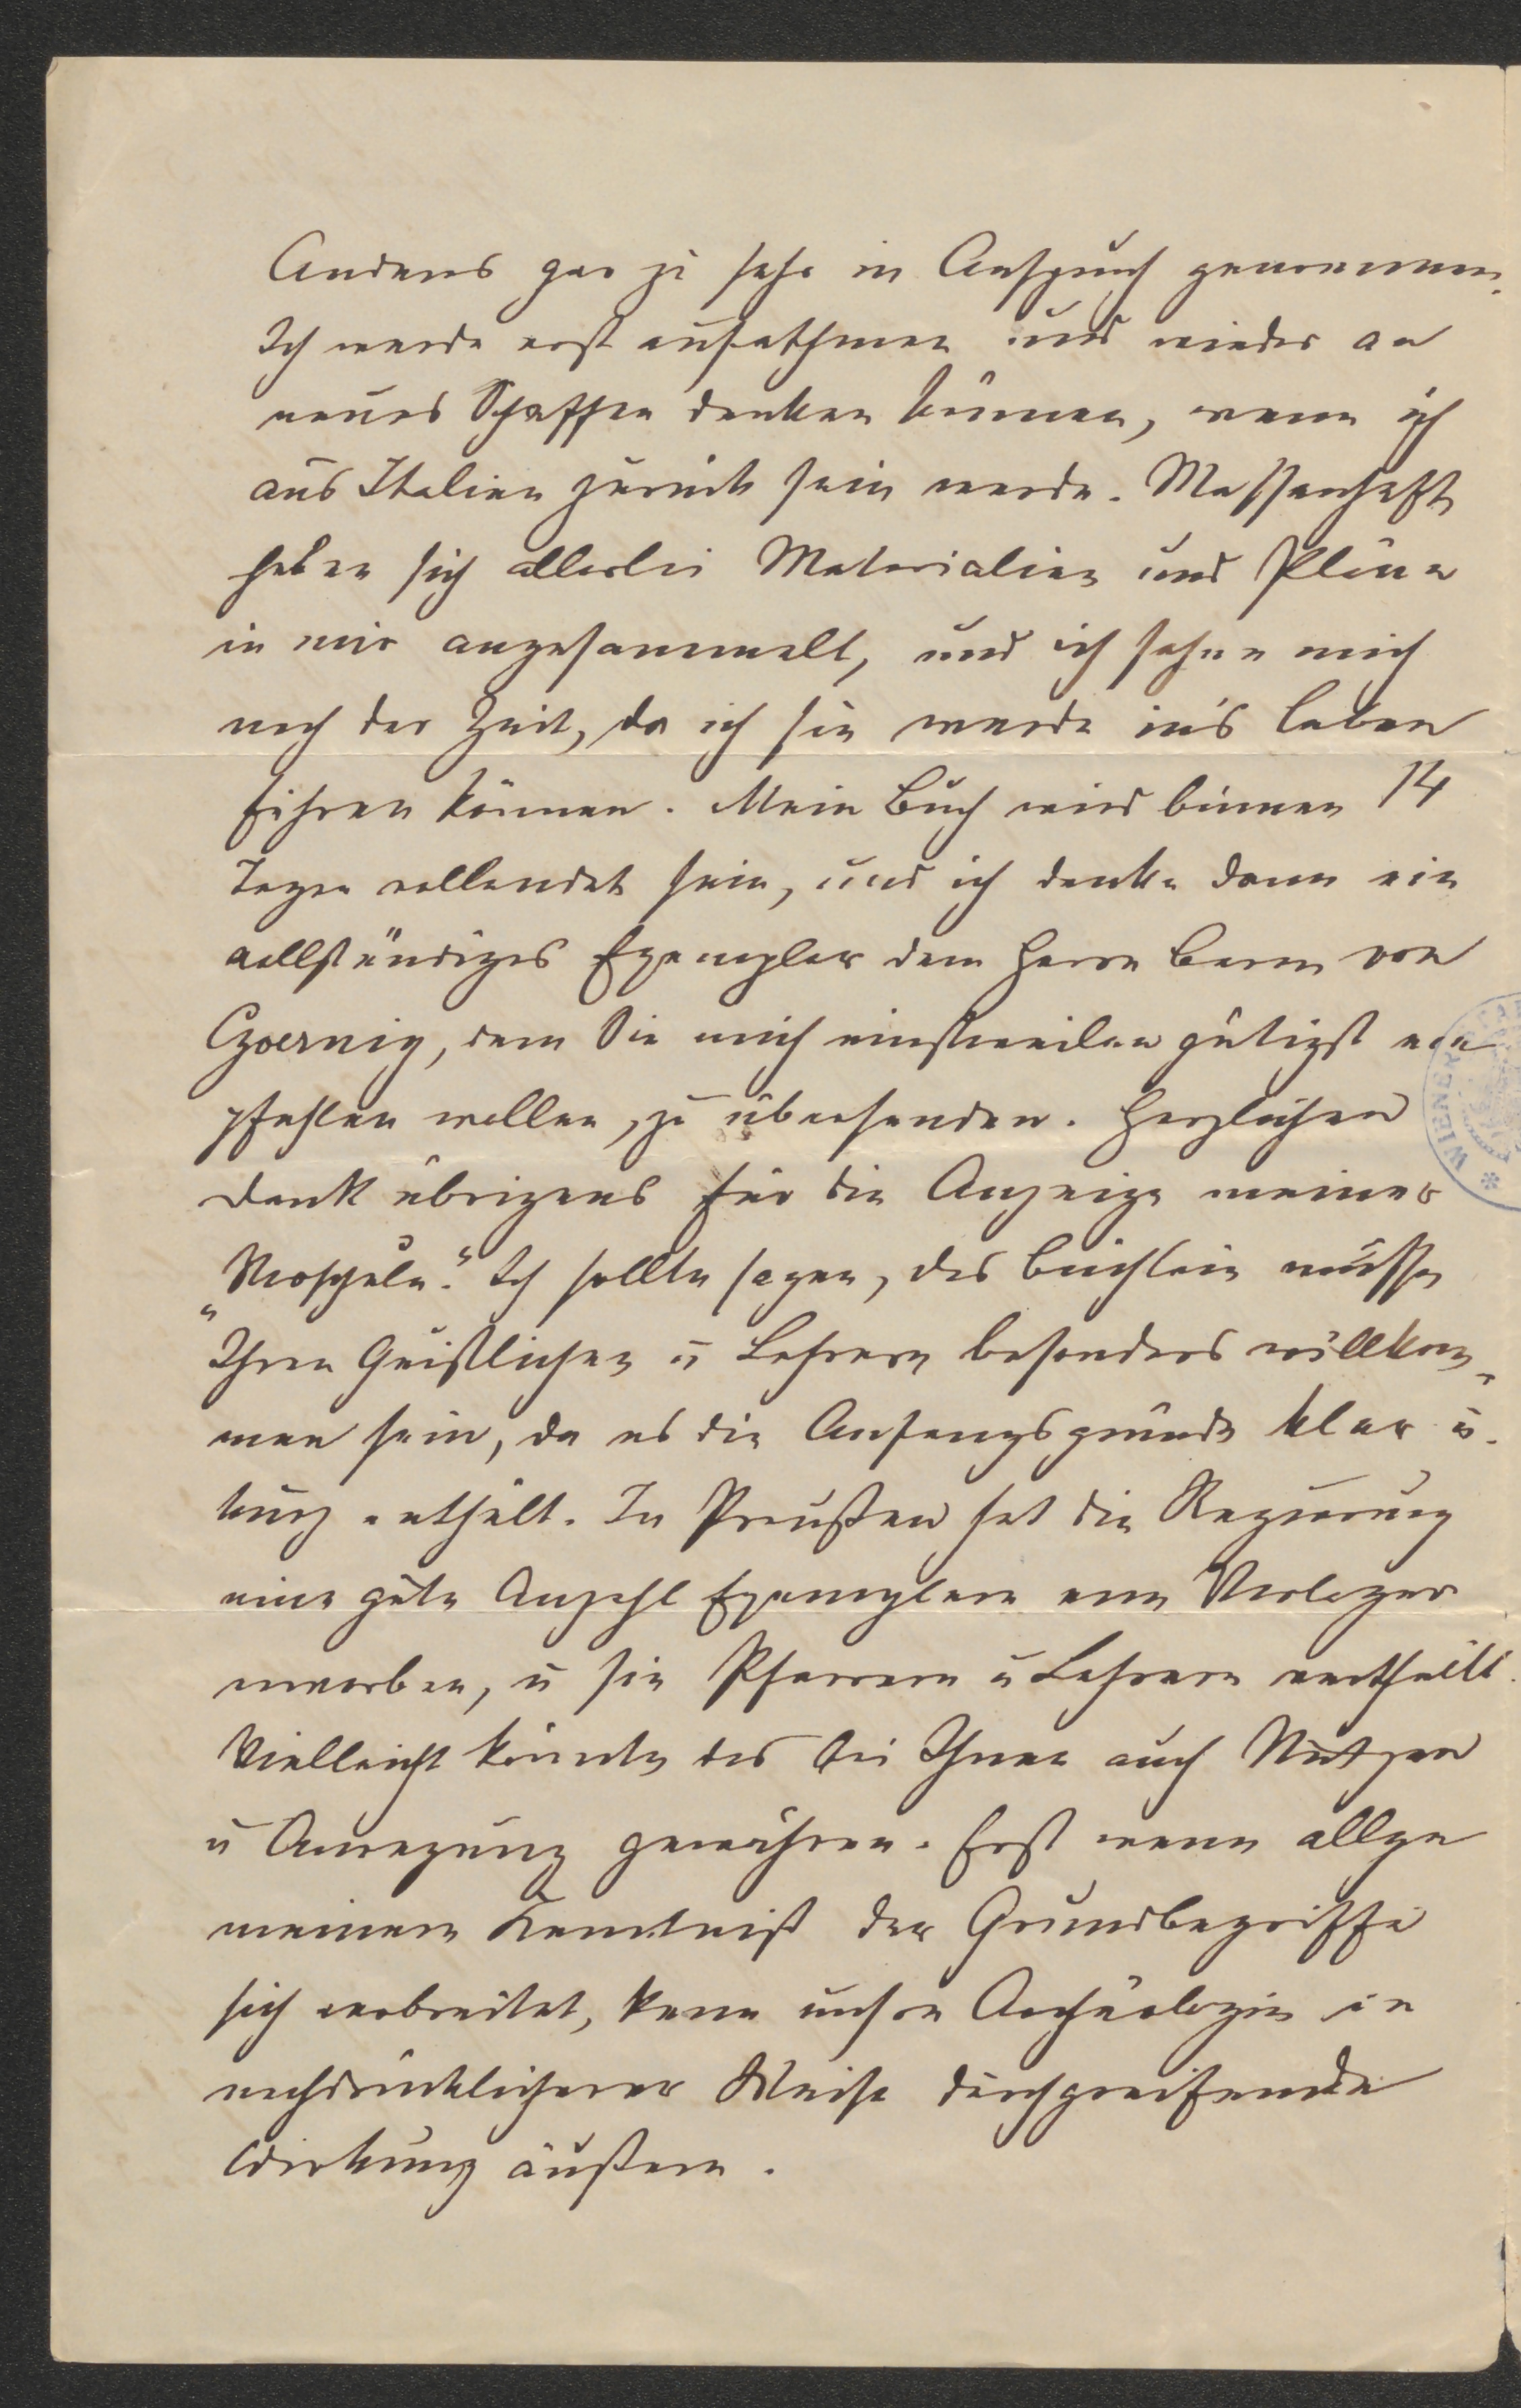 Anderes gar zu sehr in Anspruch genommen.
Ich werde erst aufathmen und wieder an
neues Schaffen denken können, wenn ich
aus Italien zurück sein werde. Massenhaft
haben sich allerlei Materialien und Pläne
in mir angesammelt, und ich sehne mich
nach der Zeit, da ich sie werde in's Leben
führen können. Mein Buch wird binnen 14
Tagen vollendet sein, und ich denke dann ein
vollständiges Exemplar dem Herrn Baron von
Czoernig, dem Sie mich einstweilen gütigst em
pfehlen wollen, zu übersenden. Herzlichen
Dank übrigens für die Anzeige meiner
„Vorschule." Ich sollte sagen, das Büchlein müsse
Ihren Geistlichen u Lehrern besonders willkom-
men sein, da es die Anfangsgründe klar u.
kurz enthält. In Preußen hat die Regierung
eine gute Anzahl Exemplare vom Verleger
erworben, u sie Pfarrern u Lehrern vertheilt.
Vielleicht könnte das bei Ihnen auch Nutzen
u Anregung gewähren. Erst wenn allge
meinere Kenntniß der Grundbegriffe
sich verbreitet, kann unsre Archäologie in
nachdrücklicherer Weise durchgreifende
Wirkung äußern.
WIENER